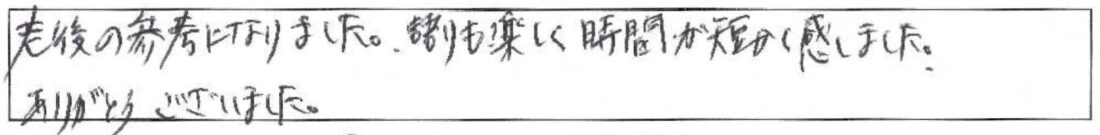 老後の参考になりました。語りも楽しく時間が短かく感しました。
ありがとうございました。